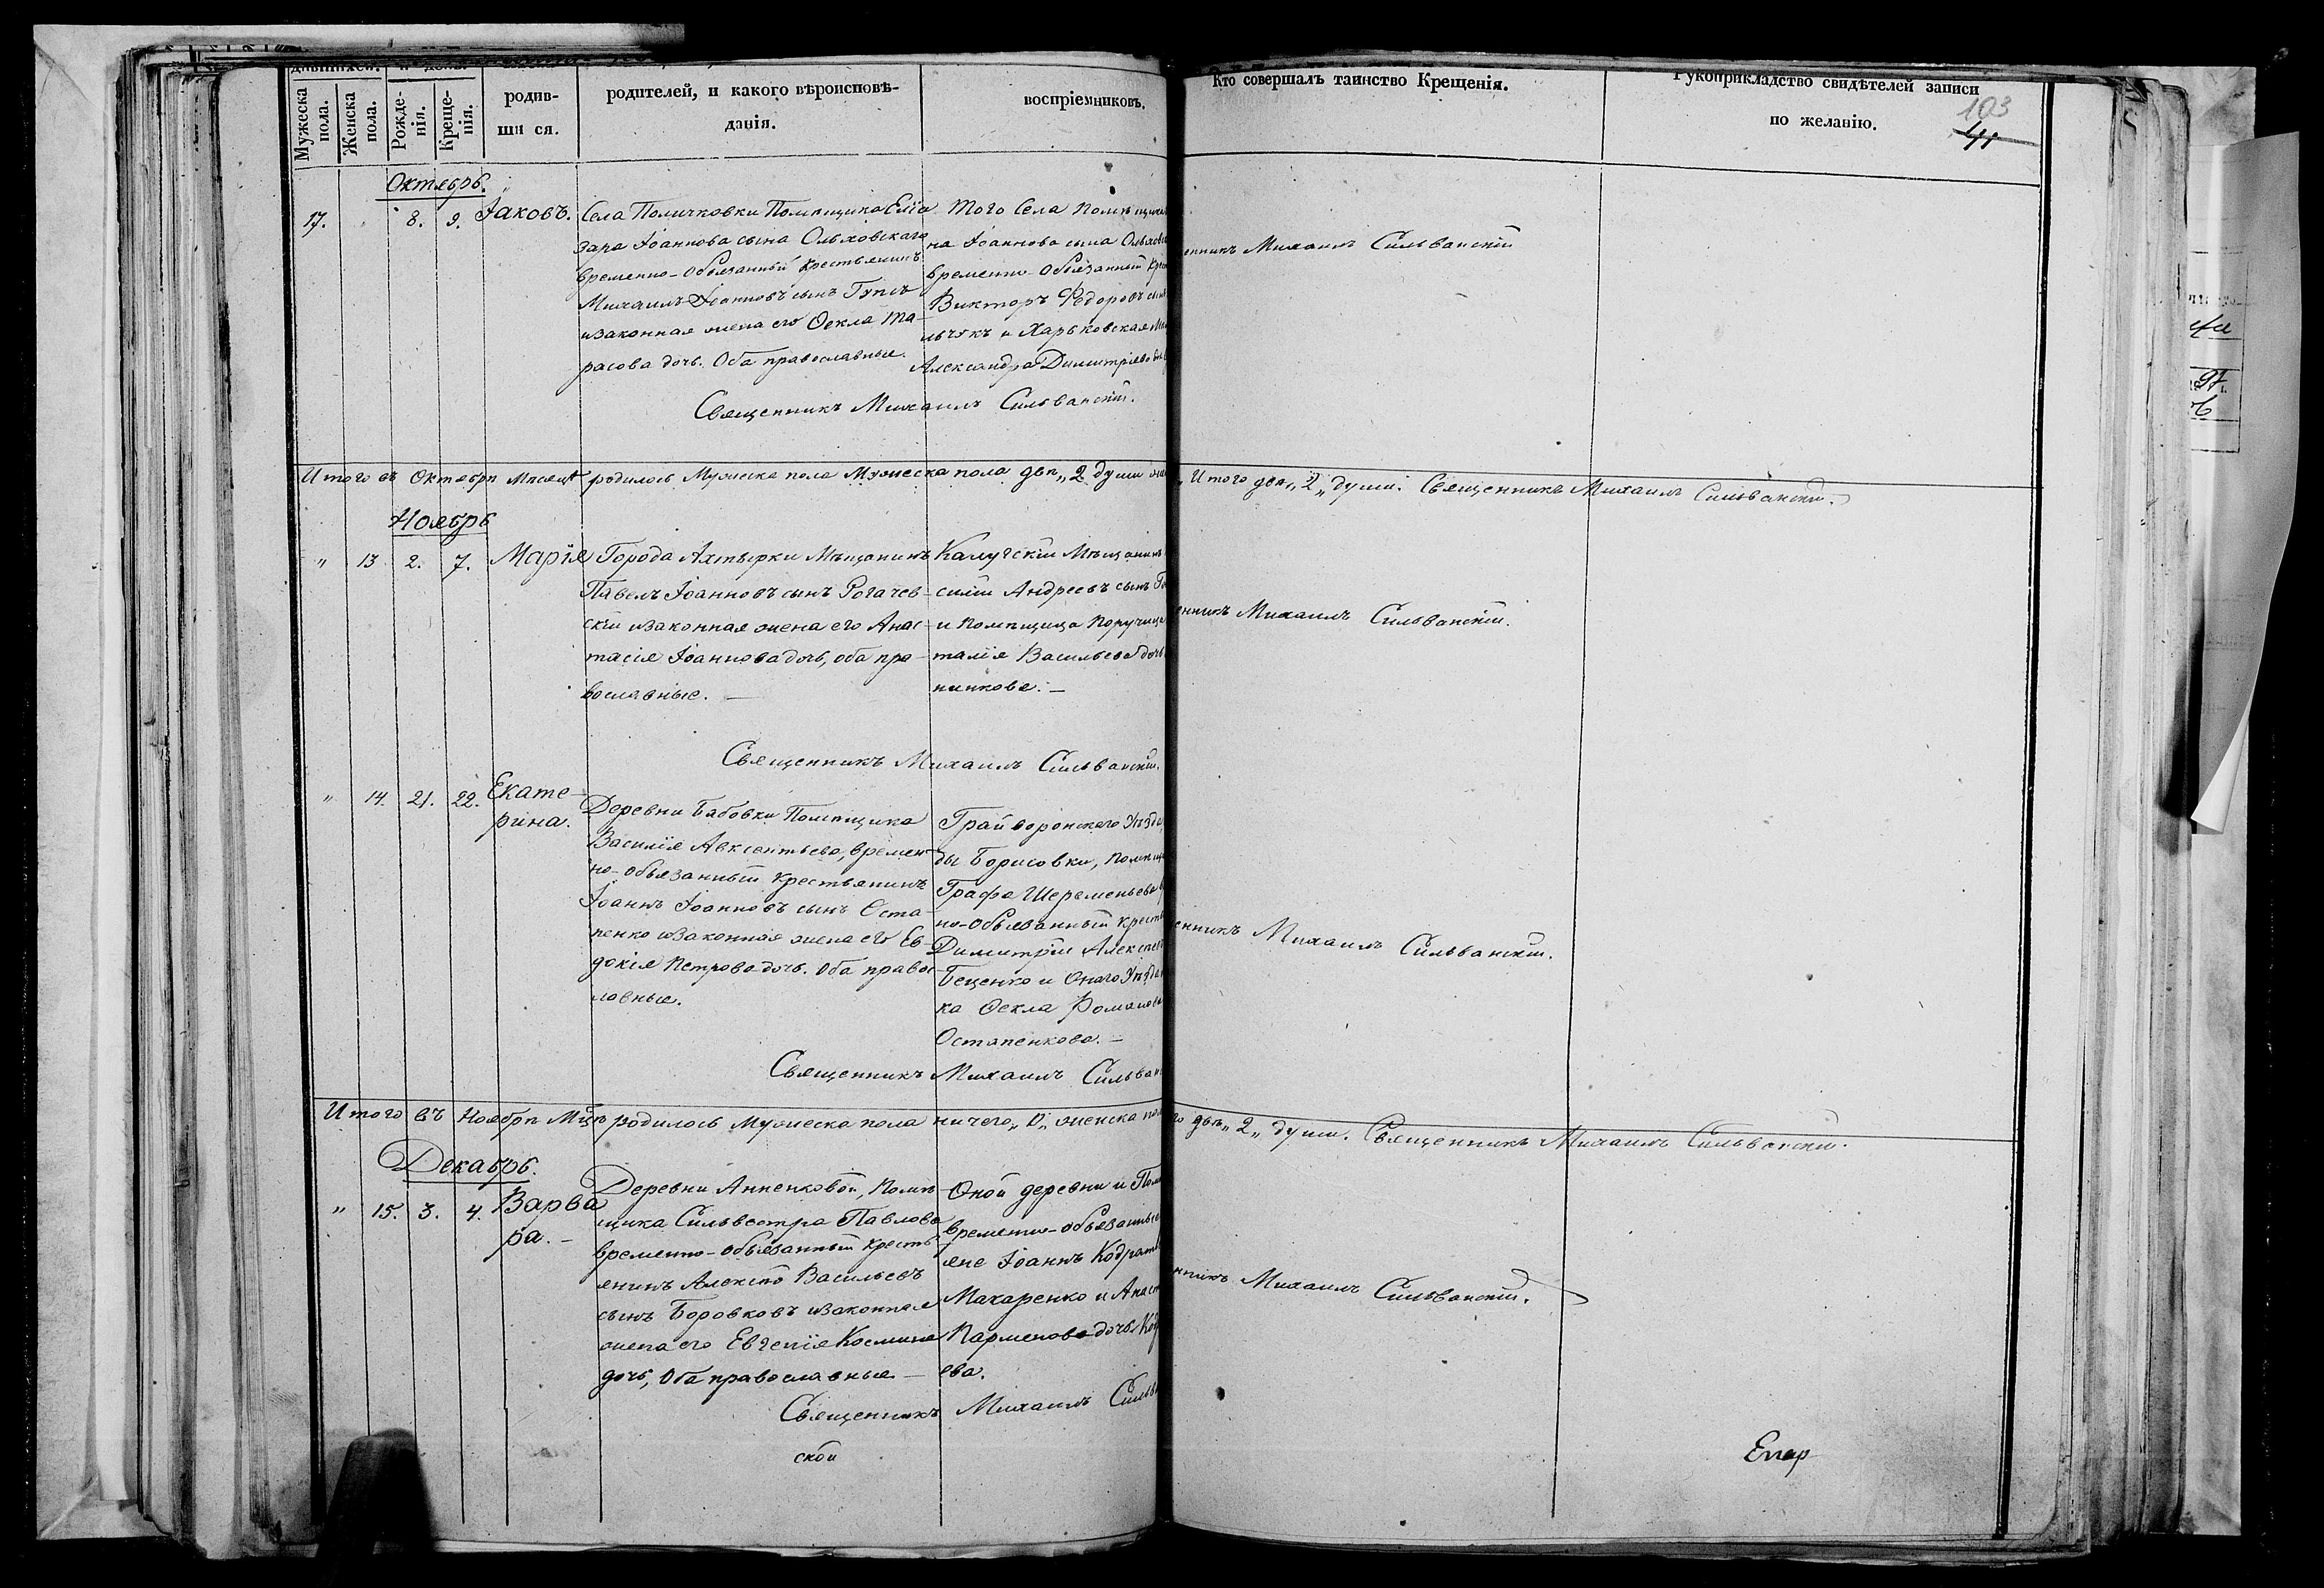 Мужеска пола.
Женска пола.
Рожде-
нія.
Креще-
нія.
родив-
ши ся.
родителей, и какого вѣроисповѣ-
данія.
воспріемниковъ.
Кто совершалъ таинство Крещенія.
Рукоприкладство свидѣтелей записи
по желанію.
103
Октябрь.
17. 8. 9. Іаковъ.
Села Поличковки Помѣщика Елеа
зара Іоаннова сына Ольховскаго
временно-обязанный крестьянинъ
Михаилъ Іоанновъ сынъ
и законная жена его Ѳекла Та-
расова дочь. Оба православные.
Того Села Помѣщика
на Іоаннова сына Ольховск
временно-обязанный кре
Викторъ Федоровъ сын
льчукъ и Харьковская
Александра Димитріева
Священникъ Михаилъ Сильванскій.
енникъ Михаилъ Сильванскій
Итого въ Октябрѣ Мѣсяцѣ родилось Мужеска пола Мужеска пола двѣ „2 души
Итого двѣ „2„ души. Священникъ Михаилъ Сильванскій.
Ноябрь
" 13 2. 7. Марія
Города Ахтырки Мѣщанинъ
Павелъ Іоанновъ сынъ Рогачев-
скій и законная жена его Анас-
тасія Іоаннова дочь, оба пра-
вославные. —
Калужскій Мѣщанинъ
силій Андреевъ сынъ
и Помѣщица Поручица
талія Васильева дочь
никова. —
енникъ Михаилъ Сильванскій.
Священникъ Михаилъ Сильванскій.
" 14. 21. 22. Екате-
рина.
Деревни Бабовки Помѣщика
Василія Авксентьева, времен-
но-обязанный крестьянинъ
Іоаннъ Іоанновъ сынъ Оста-
пенко и законная жена его Ев-
докія Петрова дочь. Оба правос
лавные.
Грайворонскаго Уѣзда
ды Борисовки, Помѣщ
Графа Шереметьева
но-обязанный крест
Димитрій Алексѣев
Беценко и Онаго Уѣзда
ка Ѳекла Романова
Остапенкова. —
енникъ Михаилъ Сильванскій.
Священникъ Михаилъ Сильван
Итого въ Ноябрѣ Мцѣ родилось Мужеска пола ничего „0„ женска пол
го двѣ „2„ души. Священникъ Михаилъ Сильванскій.
Декабрь.
" 15. 3. 4. Варва
ра. —
Деревни Анненковой, Помѣ-
щика Сильвестра Павлова
временно-обязанный кресть-
янинъ Алексѣй Васильевъ
сынъ Боровковъ и законная
жена его Евгенія Космина
дочь, Оба православные —
Оной деревни и Пом
временно-обязанные
яне Іоаннъ Кодрат
Макаренко и Анаст
Парменова дочь
ева.
нникъ Михаилъ Сильванскій.
Священникъ Михаилъ Сильв
ской
Епар